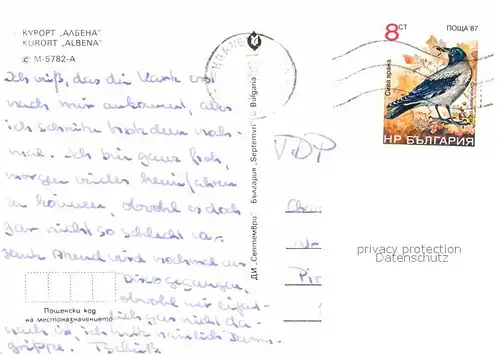 КУРОРТ „АЛБЕНА"
KURORT „ALBENA"
С М-5782-А
Ich weiß, daß die Karte erst
nach mir ankommt, aber
ich schreibe trotzdem noch-
mal. Ich bin ganz froh,
morgen wieder heimfahren
zu können, obwohl es doch
gar nicht so schlecht war.
Heute Abend wird nochmal zur
Disco gegangen,
obwohl mir eigent-
lich gar nicht da-
nach is, ich hab nämlich Darm-
grippe. Tschüß
Пощенски код
на местоназначението
ДИ „Септември" България „Septemvri" Bulgaria
8 СТ
ПОЩА'87
Сива врана
НР БЪЛГАРИЯ
ВАРНА
DDR
privacy protection
Datenschutz